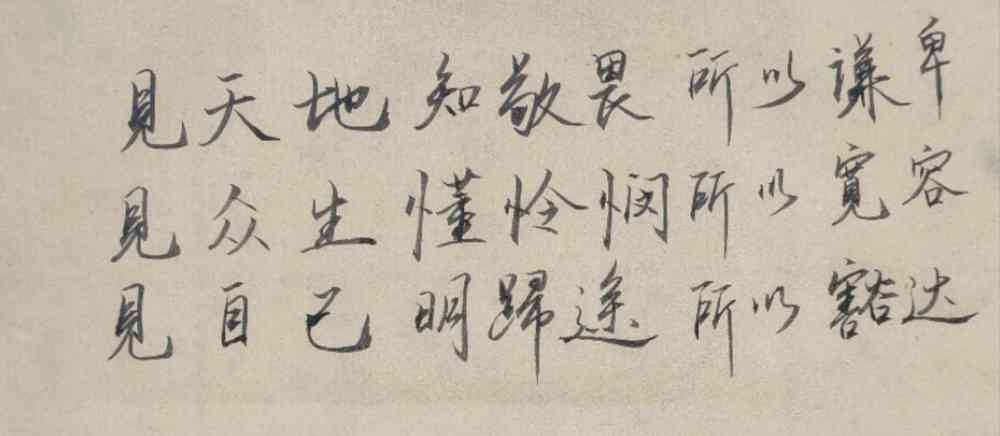 見天地 知敬畏 所以謙卑
見众生 懂怜悯 所以寬容
見自己 明歸途 所以豁达